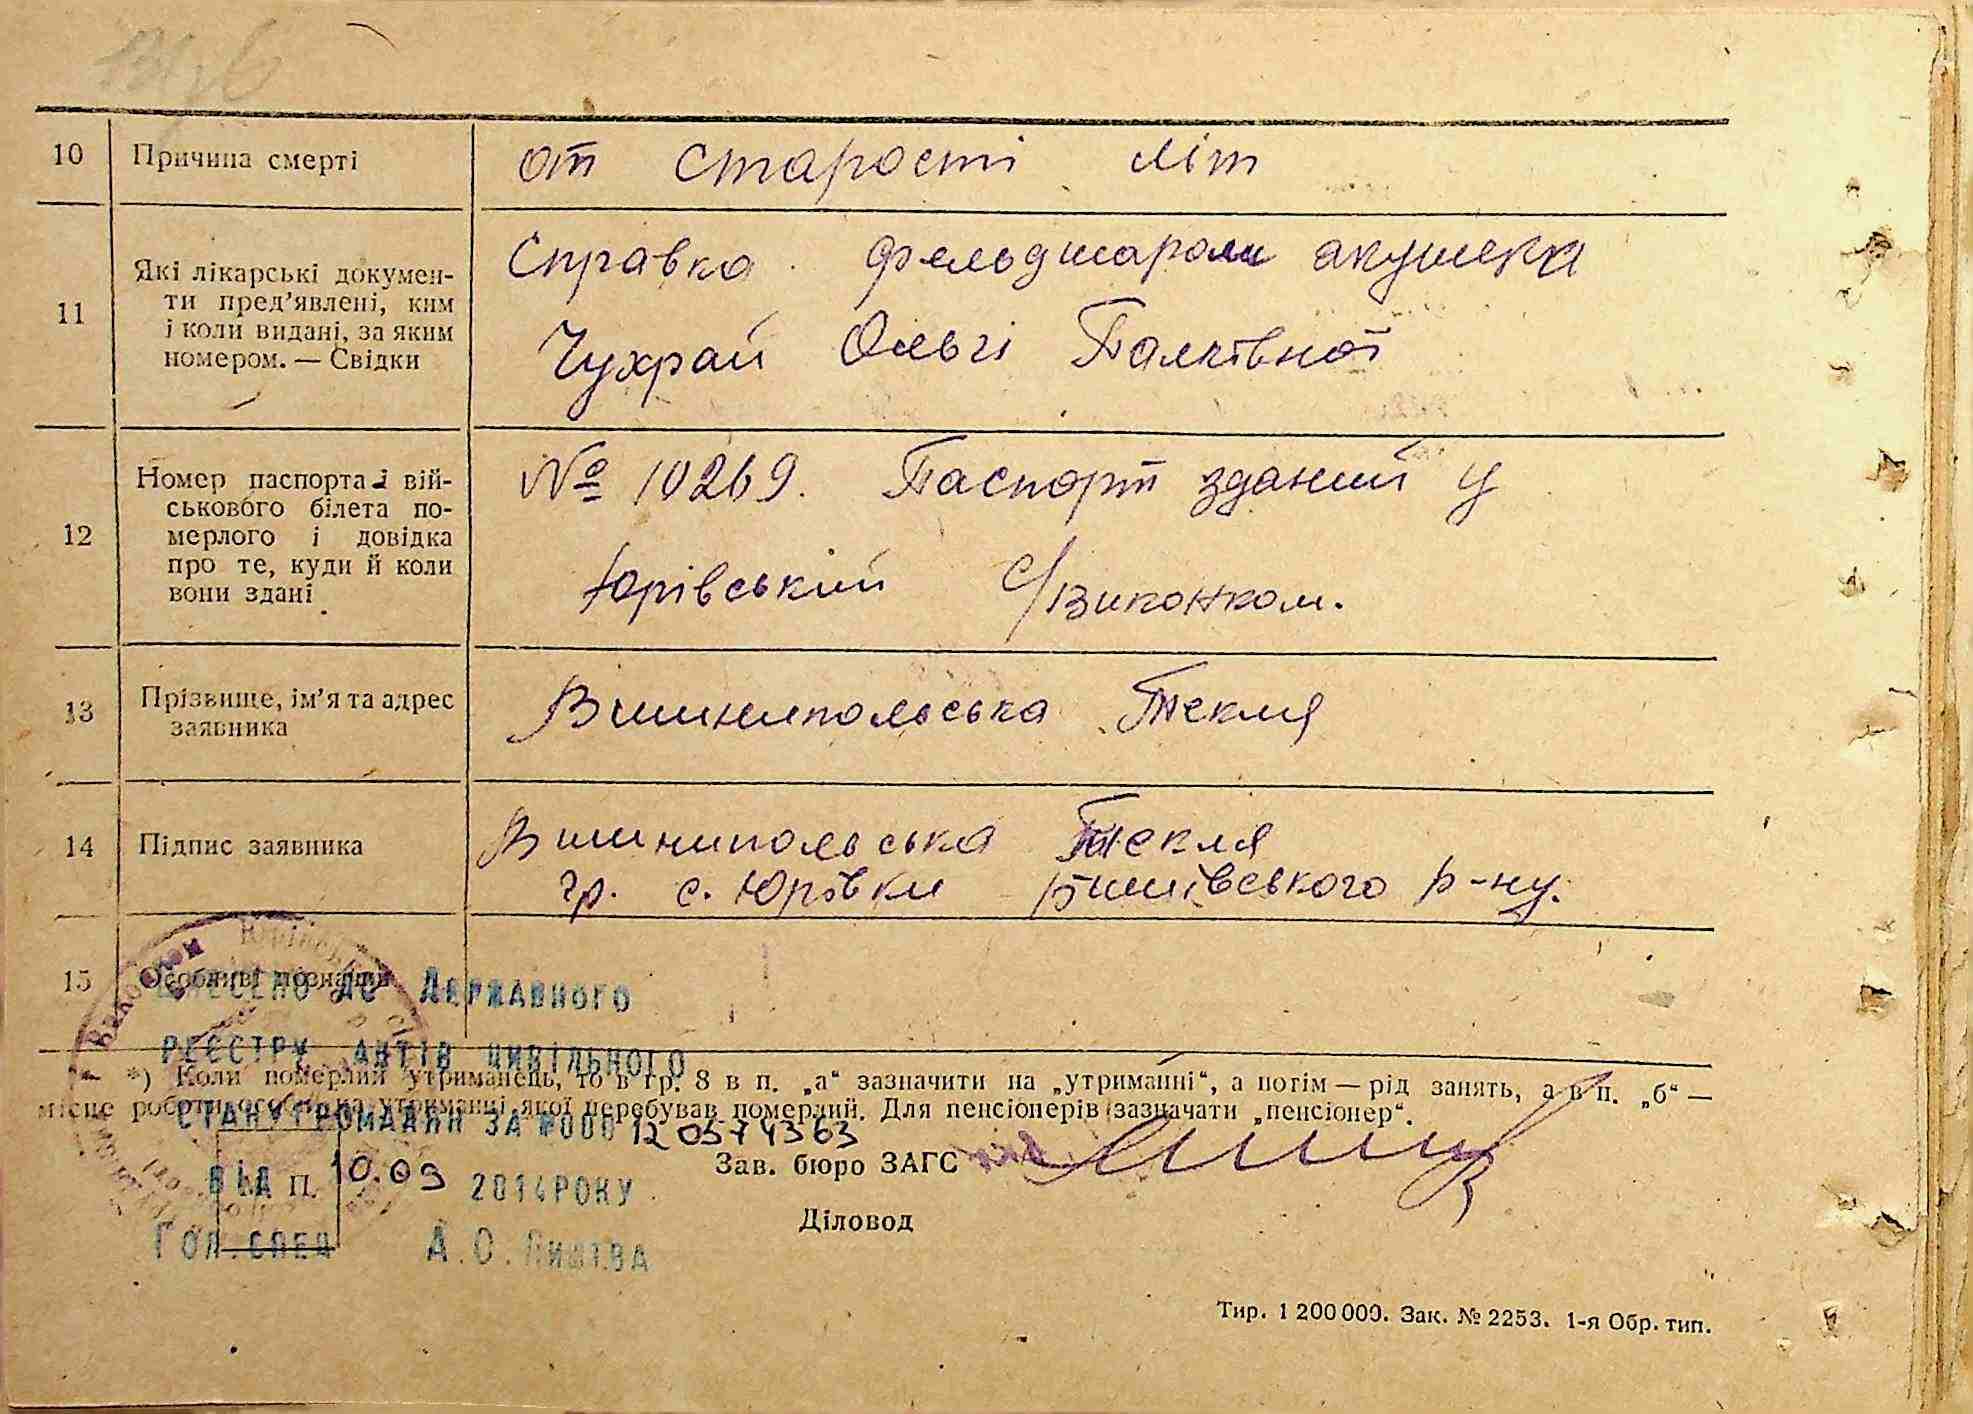 10 Причина смерті от старості літ
11 Які лікарські докумен-
ти пред’явлені, ким
і коли видані, за яким
номером. — Свідки
Справка фельдшаром акушека
Чухрай Ользі Палківної
12 Номер паспорта і вій-
ськового білета по-
мерлого і довідка
про те, куди й коли
вони здані
№ 10269. Паспорт зданий у
Юрівський с/виконком.
13 Прізвище, ім’я та адрес
заявника
Вишнипольська Текля
14 Підпис заявника
Вишнипольська Текля
гр. с. Юрівки Бишівського р-ну.
15 Особливі познаки
ВНЕСЕНО ДО ДЕРЖАВНОГО
РЕЄСТРУ АКТІВ ЦИВІЛЬНОГО
*) Коли померлий утриманець, то в гр. 8 в п. „а“ зазначити на „утриманні“, а потім — рід занять, а в п. „б“ —
місце роботи особи, на утриманні якої перебував померлий. Для пенсіонерів зазначати „пенсіонер“.
СТАНУ ГРОМАДЯН ЗА №000 12 0574363
Зав. бюро ЗАГС
ВІД 10.09 2014 РОКУ
М. П.
Діловод
ГОЛ. СПЕЦ А.О. ЛИШТВА
Тир. 1 200 000. Зак. № 2253. 1-я Обр. тип.